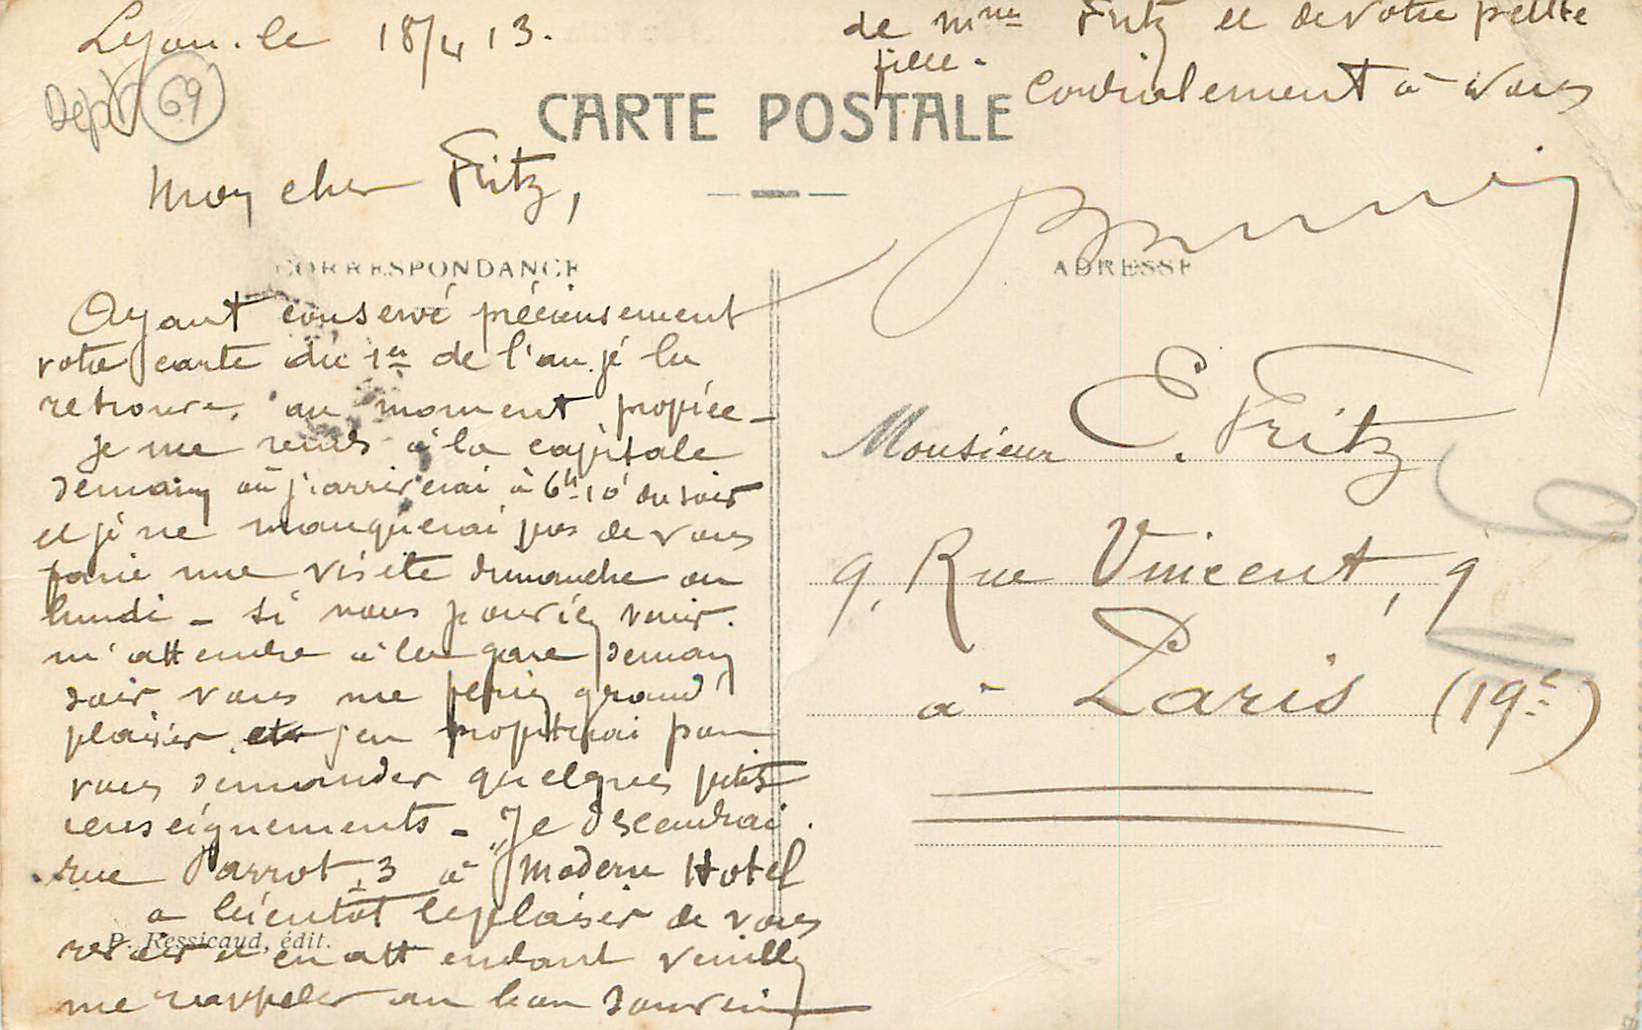 Lyon. le 18/4 13.
Dept 69
CARTE POSTALE
Mon cher Fritz,
CORRESPONDANCE
Ayant conservé précieusement
votre carte du 1er de l'an je la
retrouve au moment propice -
Je me rends à la capitale
demain où j'arriverai à 6h 10' du soir
et je ne manquerai pas de vous
faire une visite dimanche ou
lundi - si vous pouviez venir
m'attendre à la gare demain
soir vous me feriez grand
plaisir et j'en profiterai pour
vous demander quelques petits
renseignements - Je descendrai
rue Parrot 3 à "Modern Hotel
a bientôt le plaisir de vous
revoir et en attendant veuillez
me rappeler au bon souvenir
P. Ressicaud, édit.
de Mme Fritz et de votre petite
fille.
Cordialement à vous
ADRESSE
Monsieur E. Fritz
9, Rue Vincent, 9
à Paris (19e)